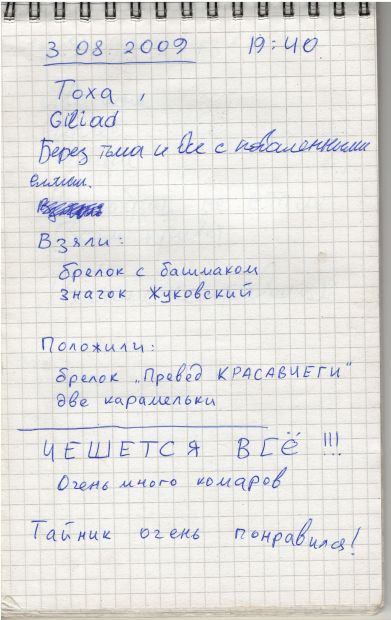 3 08. 2009 19:40
Тоха,
Giliad
Берез тьма и все с поваленными
елями.
Взяли:
брелок с башмаком
значок Жуковский
Положили:
брелок „Превед КРАСАВЧЕГИ"
две карамельки
ЧЕШЕТСЯ ВСЁ !!!
Очень много комаров
Тайник очень понравился!